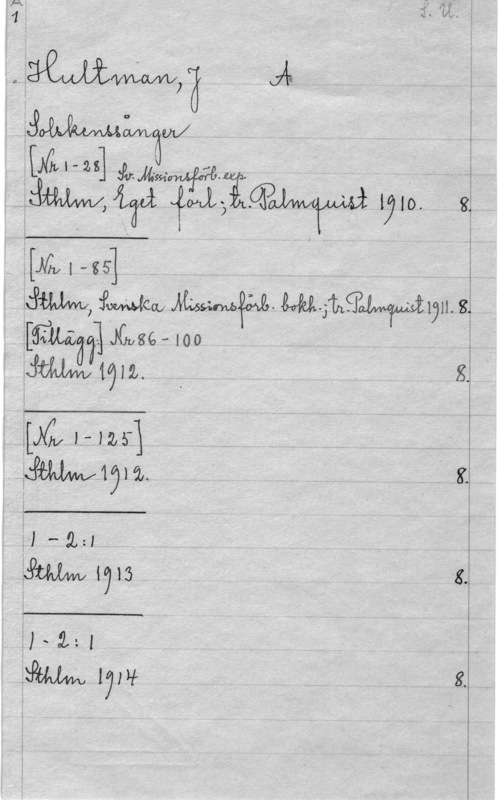 1 S. U.
Hultman, J A
Solskenssånger
[Nr 1-28] Sv. Missionsförb. exp
Sthlm, Eget förl.; tr. Palmquist 1910. 8.
[Nr 1-85]
Sthlm, Svenska Missionsförb. bokh.; tr. Palmquist 1911. 8.
[Tillägg:] Nr 86-100
Sthlm 1912. 8.
[Nr 1-125]
Sthlm 1912. 8.
1-2:1
Sthlm 1913 8.
1-2:1
Sthlm 1914 8.